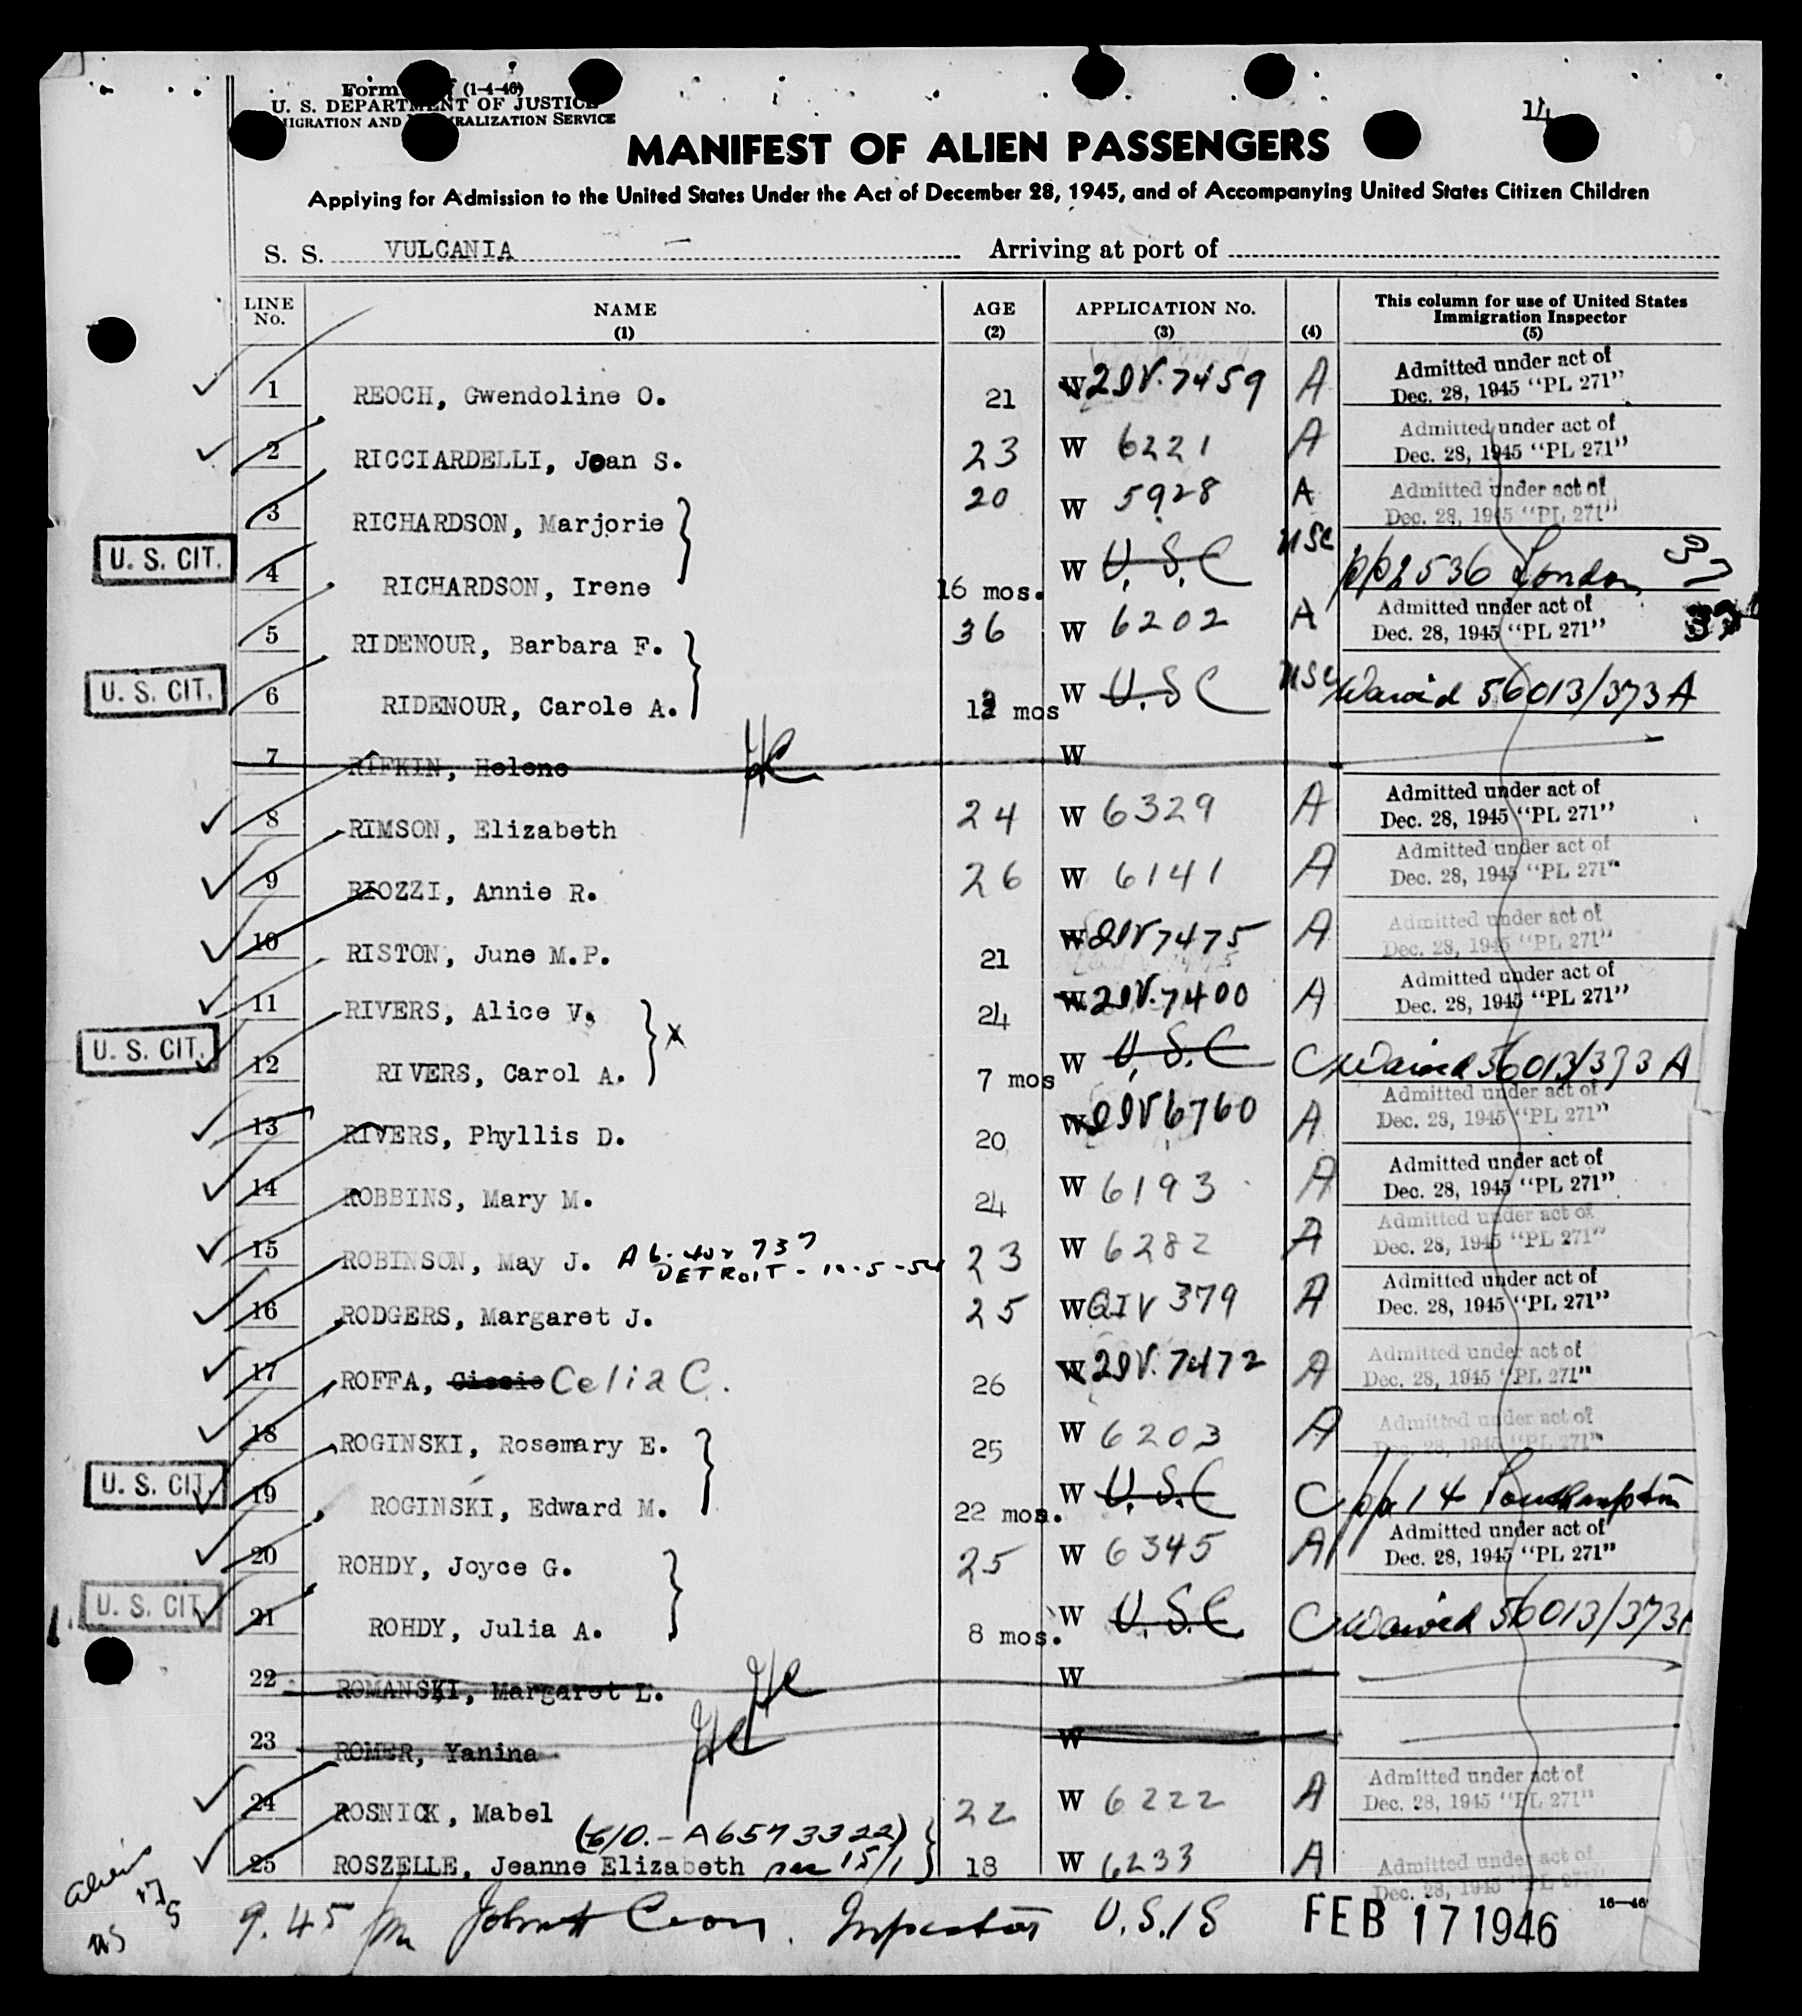 14
Form (1-4-46)
U. S. DEPARTMENT OF JUSTICE
MIGRATION AND NATURALIZATION SERVICE
MANIFEST OF ALIEN PASSENGERS
Applying for Admission to the United States Under the Act of December 28, 1945, and of Accompanying United States Citizen Children
S. S. VULCANIA Arriving at port of
LINE No. NAME (1) AGE (2) APPLICATION No. (3) (4) This column for use of United States Immigration Inspector (5)
1 REOCH, Gwendoline O. 21 W 2IV. 7459 A Admitted under act of Dec. 28, 1945 "PL 271"
2 RICCIARDELLI, Joan S. 23 W 6221 A Admitted under act of Dec. 28, 1945 "PL 271"
3 RICHARDSON, Marjorie 20 W 5928 A Admitted under act of Dec. 28, 1945 "PL 271"
U. S. CIT. 4 RICHARDSON, Irene 16 mos. W U.S.C USC pp 2536 London 37
5 RIDENOUR, Barbara F. 36 W 6202 A Admitted under act of Dec. 28, 1945 "PL 271"
U. S. CIT. 6 RIDENOUR, Carole A. mos W U.S C USC Waived 56013/373 A
7 RIFKIN, Helene W
8 RIMSON, Elizabeth 24 W 6329 A Admitted under act of Dec. 28, 1945 "PL 271"
9 RIOZZI, Annie R. 26 W 6141 A Admitted under act of Dec. 28, 1945 "PL 271"
10 RISTON, June M.P. 21 W QIV 7475 A Admitted under act of Dec. 28, 1945 "PL 271"
11 RIVERS, Alice V. 24 W 2IV. 7400 A Admitted under act of Dec. 28, 1945 "PL 271"
U. S. CIT. 12 RIVERS, Carol A. X 7 mos W U.S.C C Waived 56013/373 A
13 RIVERS, Phyllis D. 20 W QIV 6760 A Admitted under act of Dec. 28, 1945 "PL 271"
14 ROBBINS, Mary M. 24 W 6193 A Admitted under act of Dec. 28, 1945 "PL 271"
15 ROBINSON, May J. A 6. 737 DETROIT - 10-5-54 23 W 6282 A Admitted under act of Dec. 28, 1945 "PL 271"
16 RODGERS, Margaret J. 25 W QIV 379 A Admitted under act of Dec. 28, 1945 "PL 271"
17 ROFFA, Cissie Celia C. 26 W 2IV. 7472 A Admitted under act of Dec. 28, 1945 "PL 271"
18 ROGINSKI, Rosemary E. 25 W 6203 A Admitted under act of Dec. 28, 1945 "PL 271"
U. S. CIT. 19 ROGINSKI, Edward M. 22 mos. W U.S.C C pp 14 Southampton
20 ROHDY, Joyce G. 25 W 6345 A Admitted under act of Dec. 28, 1945 "PL 271"
U. S. CIT 21 ROHDY, Julia A. 8 mos. W U.S.C C Waived 56013/373
22 ROMANSKI, Margaret L. W
23 ROMER, Yanina W
24 ROSNICK, Mabel 22 W 6222 A Admitted under act of Dec. 28, 1945 "PL 271"
25 ROSZELLE, Jeanne Elizabeth 18 W 6233 A Admitted under act of Dec. 28, 1945 "PL 271"
aliens 17
us 5
9.45 pm Inspector U.S.I S FEB 17 1946 16—46